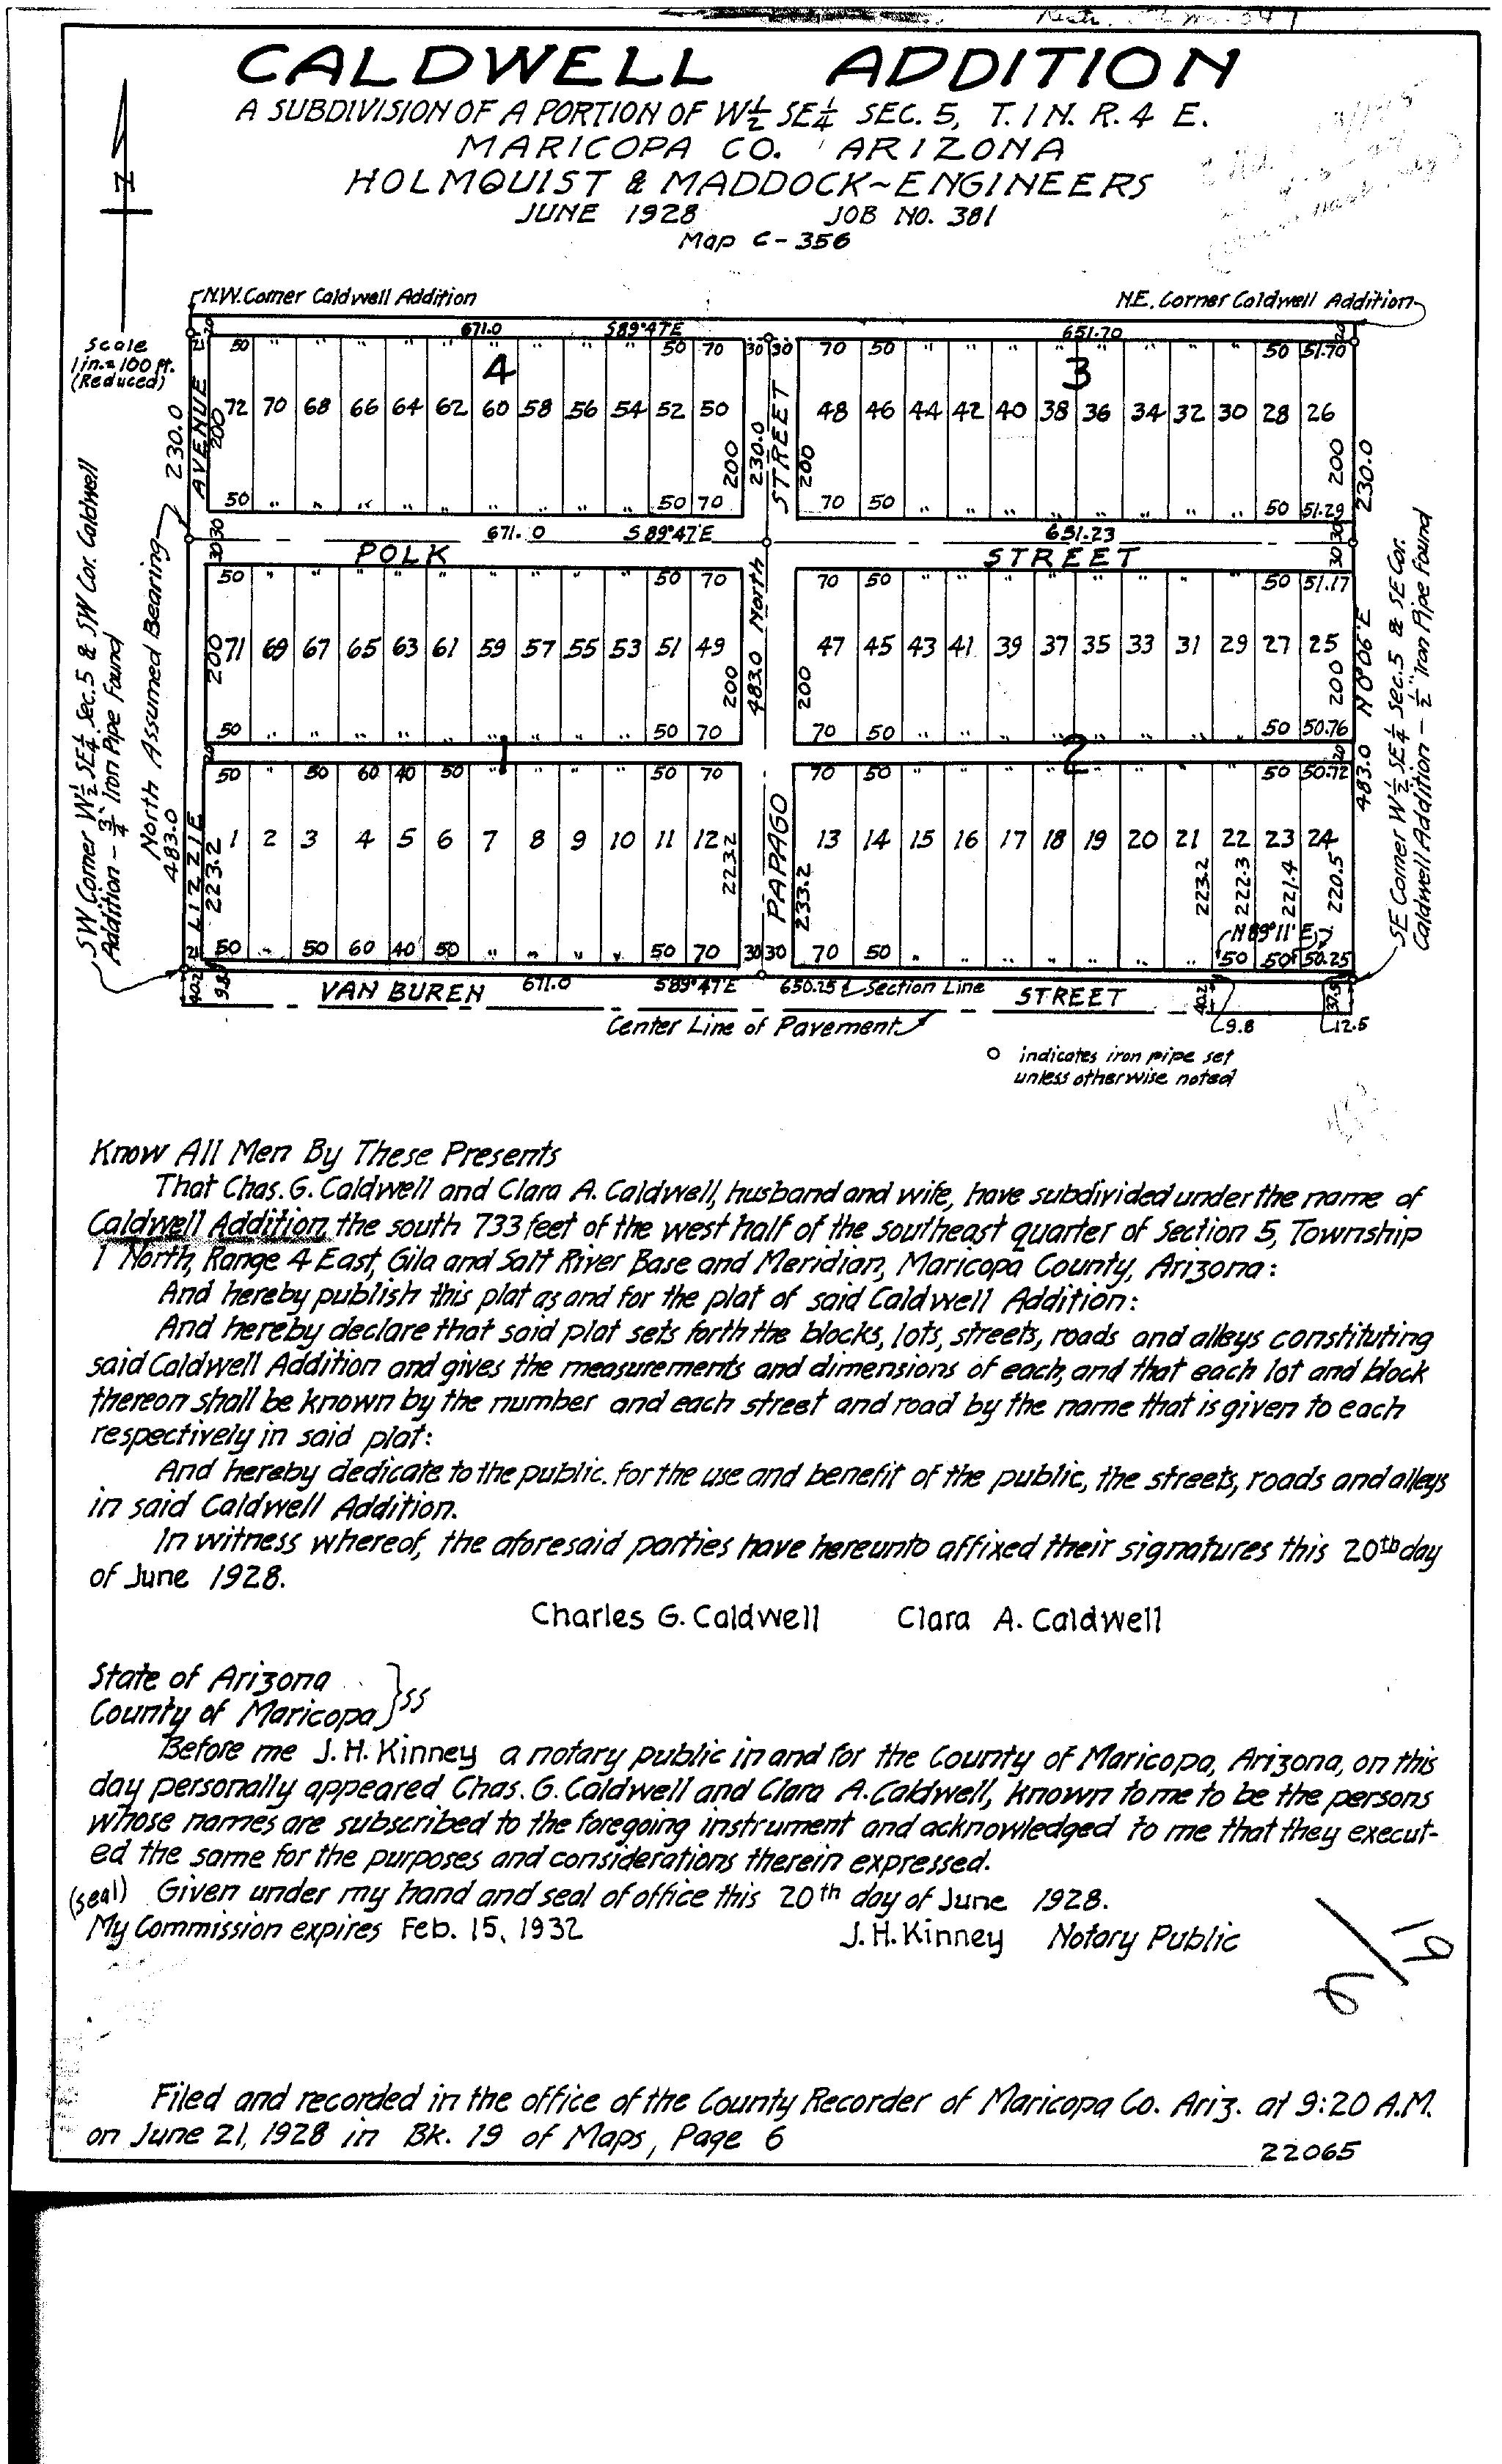 CALDWELL ADDITION
A SUBDIVISION OF A PORTION OF W½ SE¼ SEC. 5, T. 1 N. R. 4 E.
MARICOPA CO. ARIZONA
HOLMQUIST & MADDOCK~ENGINEERS
JUNE 1928 JOB NO. 381
Map C-356
N
Scale
1 in.=100 ft.
(Reduced)
N.W. Corner Caldwell Addition
N.E. Corner Caldwell Addition
671.0 S89°47'E 651.70
50 " " " " " " " " " 50 70 30 30 70 50 " " " " " " " " 50 51.70
4 3
72 70 68 66 64 62 60 58 56 54 52 50 48 46 44 42 40 38 36 34 32 30 28 26
230.0 200 200 230.0 200 200 230.0
50 " " " " " " " " " 50 70 70 50 " " " " " " " " 50 51.29
671.0 S89°47'E 651.23
30 30 30 30
POLK STREET
50 " " " " " " " " " 50 70 70 50 " " " " " " " " 50 51.17
71 69 67 65 63 61 59 57 55 53 51 49 47 45 43 41 39 37 35 33 31 29 27 25
200 200 483.0 North 200 200 N0°06'E
50 " " " " " " " " " 50 70 70 50 " " " " " " " " 50 50.76
1 2
50 " 50 60 40 50 " " " " 50 70 70 50 " " " " " " " " 50 50.72
1 2 3 4 5 6 7 8 9 10 11 12 13 14 15 16 17 18 19 20 21 22 23 24
483.0 223.2 223.2 233.2 223.2 222.3 221.4 220.5 483.0
N89°11'E
50 " 50 60 40 50 " " " " 50 70 30 30 70 50 " " " " " " " 50 50 50.25
LIZZIE AVENUE
PAPAGO STREET
SW Corner W½ SE¼ Sec. 5 & SW Cor. Caldwell
Addition - ¾" Iron Pipe Found
North Assumed Bearing
SE Corner W½ SE¼ Sec. 5 & SE Cor.
Caldwell Addition - ½" Iron Pipe Found
40.2 9.8 VAN BUREN 671.0 S89°47'E 650.25 Section Line STREET 40.2 37.5
Center Line of Pavement 9.8 12.5
o indicates iron pipe set
unless otherwise noted
Know All Men By These Presents
That Chas. G. Caldwell and Clara A. Caldwell, husband and wife, have subdivided under the name of
Caldwell Addition, the south 733 feet of the west half of the southeast quarter of Section 5, Township
1 North, Range 4 East, Gila and Salt River Base and Meridian, Maricopa County, Arizona:
And hereby publish this plat as and for the plat of said Caldwell Addition:
And hereby declare that said plat sets forth the blocks, lots, streets, roads and alleys constituting
said Caldwell Addition and gives the measurements and dimensions of each, and that each lot and block
thereon shall be known by the number and each street and road by the name that is given to each
respectively in said plat:
And hereby dedicate to the public. for the use and benefit of the public, the streets, roads and alleys
in said Caldwell Addition.
In witness whereof, the aforesaid parties have hereunto affixed their signatures this 20th day
of June 1928.
Charles G. Caldwell Clara A. Caldwell
State of Arizona
County of Maricopa } ss
Before me J. H. Kinney a notary public in and for the County of Maricopa, Arizona, on this
day personally appeared Chas. G. Caldwell and Clara A. Caldwell, known to me to be the persons
whose names are subscribed to the foregoing instrument and acknowledged to me that they execut-
ed the same for the purposes and considerations therein expressed.
(seal) Given under my hand and seal of office this 20th day of June 1928.
My Commission expires Feb. 15, 1932
J. H. Kinney Notary Public
19/6
Filed and recorded in the office of the County Recorder of Maricopa Co. Ariz. at 9:20 A.M.
on June 21, 1928 in Bk. 19 of Maps, Page 6
22065